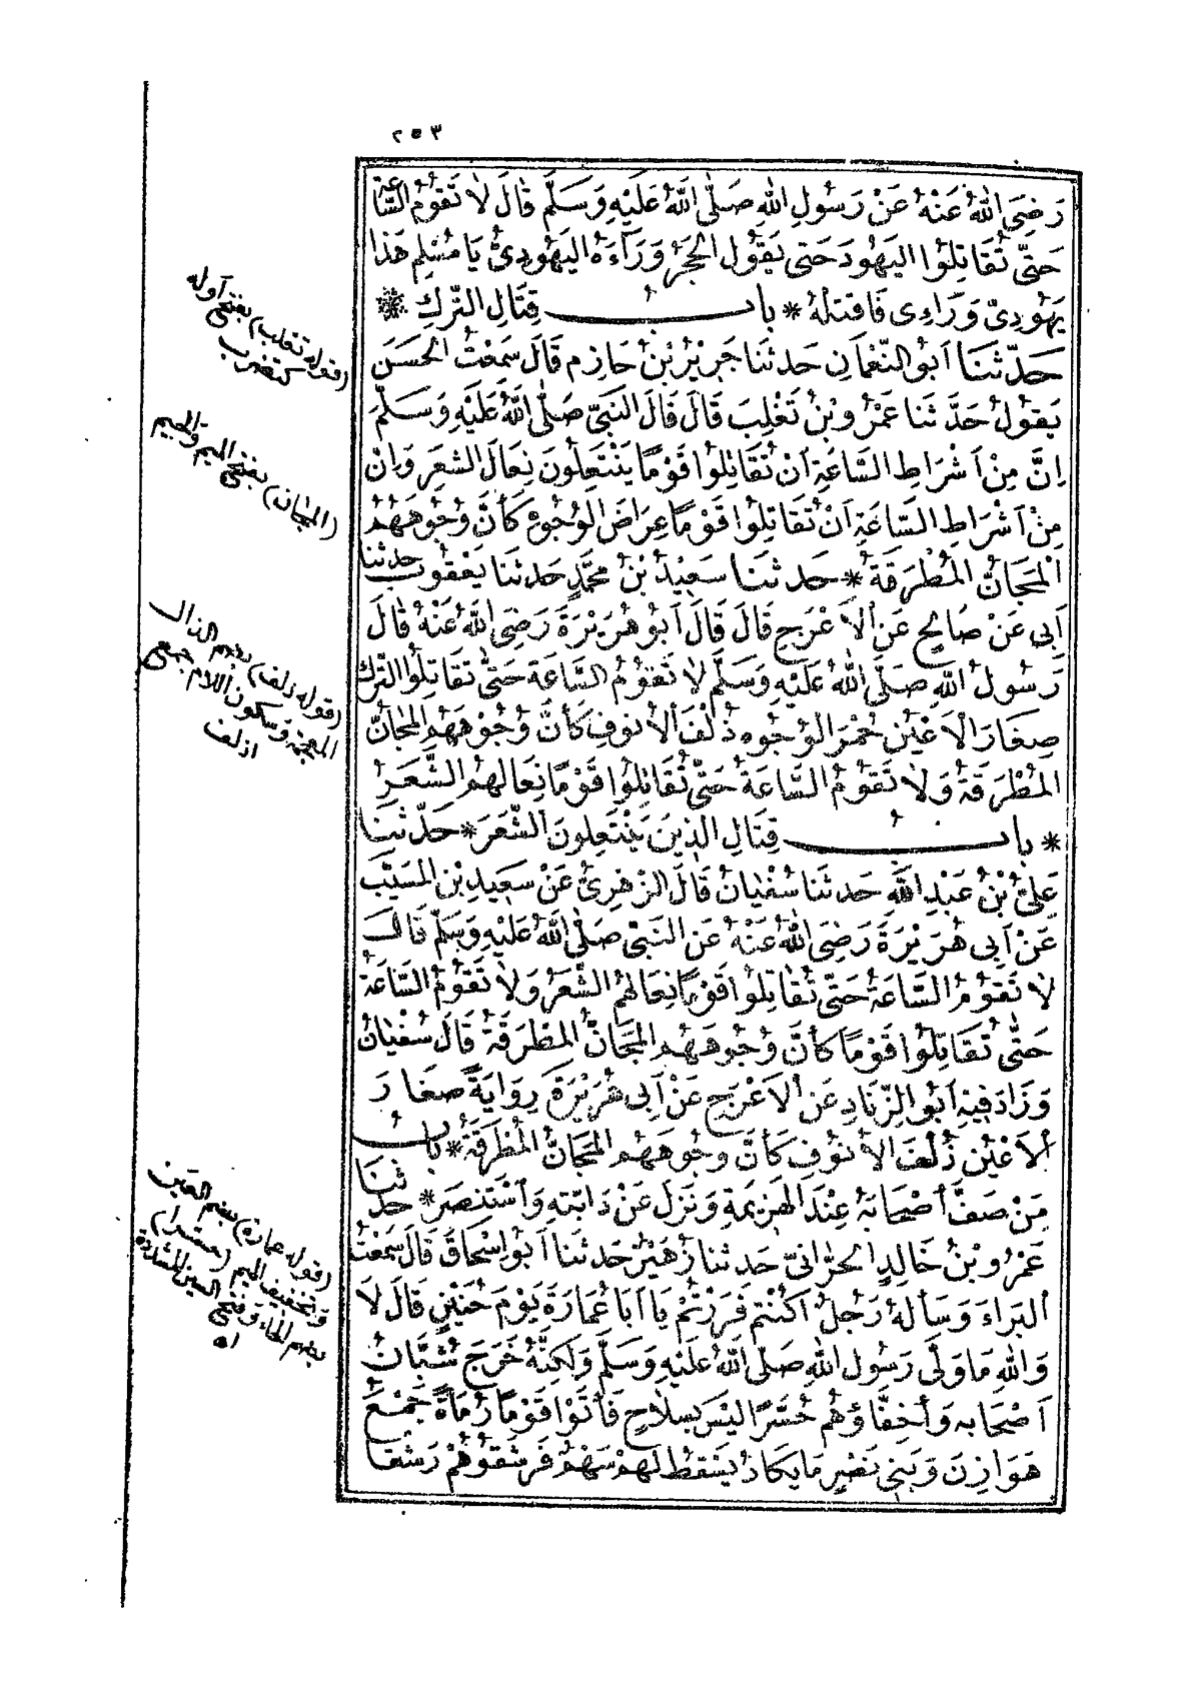 ٢٥٣
رَضِيَ اللّٰهُ عَنْهُ عَنْ رَسُولِ اللّٰهِ صَلَّى اللّٰهُ عَلَيْهِ وَسَلَّمَ قَالَ لَا تَقُومُ السَّاعَةُ
حَتَّى تُقَاتِلُوا الْيَهُودَ حَتَّى يَقُولَ الْحَجَرُ وَرَآءَهُ الْيَهُودِيُّ يَا مُسْلِمُ هَذَا
يَهُودِيٌّ وَرَاءِى فَاقْتُلْهُ * بابُ قِتَالِ التُّرْكِ *
حَدَّثَنَا أَبُو النُّعْمَانِ حَدَّثَنَا جَرِيرُ بْنُ حَازِمٍ قَالَ سَمِعْتُ الْحَسَنَ
يَقُولُ حَدَّثَنَا عَمْرُو بْنُ تَغْلِبَ قَالَ قَالَ النَّبِيُّ صَلَّى اللّٰهُ عَلَيْهِ وَسَلَّمَ
إِنَّ مِنْ أَشْرَاطِ السَّاعَةِ أَنْ تُقَاتِلُوا قَوْمًا يَنْتَعِلُونَ نِعَالَ الشَّعَرِ وَإِنَّ
مِنْ أَشْرَاطِ السَّاعَةِ أَنْ تُقَاتِلُوا قَوْمًا عِرَاضَ الْوُجُوهِ كَأَنَّ وُجُوهَهُمُ
الْمَجَانُّ الْمُطْرَقَةُ * حَدَّثَنَا سَعِيدُ بْنُ مُحَمَّدٍ حَدَّثَنَا يَعْقُوبُ حَدَّثَنَا
أَبِى عَنْ صَالِحٍ عَنِ الْأَعْرَجِ قَالَ قَالَ أَبُو هُرَيْرَةَ رَضِيَ اللّٰهُ عَنْهُ قَالَ
رَسُولُ اللّٰهِ صَلَّى اللّٰهُ عَلَيْهِ وَسَلَّمَ لَا تَقُومُ السَّاعَةُ حَتَّى تُقَاتِلُوا التُّرْكَ
صِغَارَ الْأَعْيُنِ حُمْرَ الْوُجُوهِ ذُلْفَ الْأُنُوفِ كَأَنَّ وُجُوهَهُمُ الْمَجَانُّ
الْمُطْرَقَةُ وَلَا تَقُومُ السَّاعَةُ حَتَّى تُقَاتِلُوا قَوْمًا نِعَالُهُمُ الشَّعَرُ
* بابُ قِتَالِ الَّذِينَ يَنْتَعِلُونَ الشَّعَرَ * حَدَّثَنَا
عَلِيُّ بْنُ عَبْدِ اللّٰهِ حَدَّثَنَا سُفْيَانُ قَالَ الزُّهْرِيُّ عَنْ سَعِيدِ بْنِ الْمُسَيَّبِ
عَنْ أَبِى هُرَيْرَةَ رَضِيَ اللّٰهُ عَنْهُ عَنِ النَّبِيِّ صَلَّى اللّٰهُ عَلَيْهِ وَسَلَّمَ قَالَ
لَا تَقُومُ السَّاعَةُ حَتَّى تُقَاتِلُوا قَوْمًا نِعَالُهُمُ الشَّعَرُ وَلَا تَقُومُ السَّاعَةُ
حَتَّى تُقَاتِلُوا قَوْمًا كَأَنَّ وُجُوهَهُمُ الْمَجَانُّ الْمُطْرَقَةُ قَالَ سُفْيَانُ
وَزَادَ فِيهِ أَبُو الزِّنَادِ عَنِ الْأَعْرَجِ عَنْ أَبِى هُرَيْرَةَ رِوَايَةً صِغَارَ
الْأَعْيُنِ ذُلْفَ الْأُنُوفِ كَأَنَّ وُجُوهَهُمُ الْمَجَانُّ الْمُطْرَقَةُ * بابُ
مَنْ صَفَّ أَصْحَابَهُ عِنْدَ الْهَزِيمَةِ وَنَزَلَ عَنْ دَابَّتِهِ وَاسْتَنْصَرَ * حَدَّثَنَا
عَمْرُو بْنُ خَالِدٍ الْحَرَّانِيُّ حَدَّثَنَا زُهَيْرٌ حَدَّثَنَا أَبُو إِسْحَاقَ قَالَ سَمِعْتُ
الْبَرَاءَ وَسَأَلَهُ رَجُلٌ أَكُنْتُمْ فَرَرْتُمْ يَا أَبَا عُمَارَةَ يَوْمَ حُنَيْنٍ قَالَ لَا
وَاللّٰهِ مَا وَلَّى رَسُولُ اللّٰهِ صَلَّى اللّٰهُ عَلَيْهِ وَسَلَّمَ وَلَكِنَّهُ خَرَجَ شُبَّانُ
أَصْحَابِهِ وَأَخِفَّاؤُهُمْ حُسَّرًا لَيْسَ بِسِلَاحٍ فَأَتَوْا قَوْمًا رُمَاةً جَمْعَ
هَوَازِنَ وَبَنِى نَصْرٍ مَا يَكَادُ يَسْقُطُ لَهُمْ سَهْمٌ فَرَشَقُوهُمْ رَشْقًا
(قوله تغلب) بفتح أوله
كتضرب
(المجان) بفتح الميم والجيم
(قوله ذلف) بضم الذال
المعجمة وسكون اللام جمع
اذلف
(قوله عمارة) بضم العين
وتخفيف الميم (حسرا)
بضم الحاء وفتح السين المشددة
اه